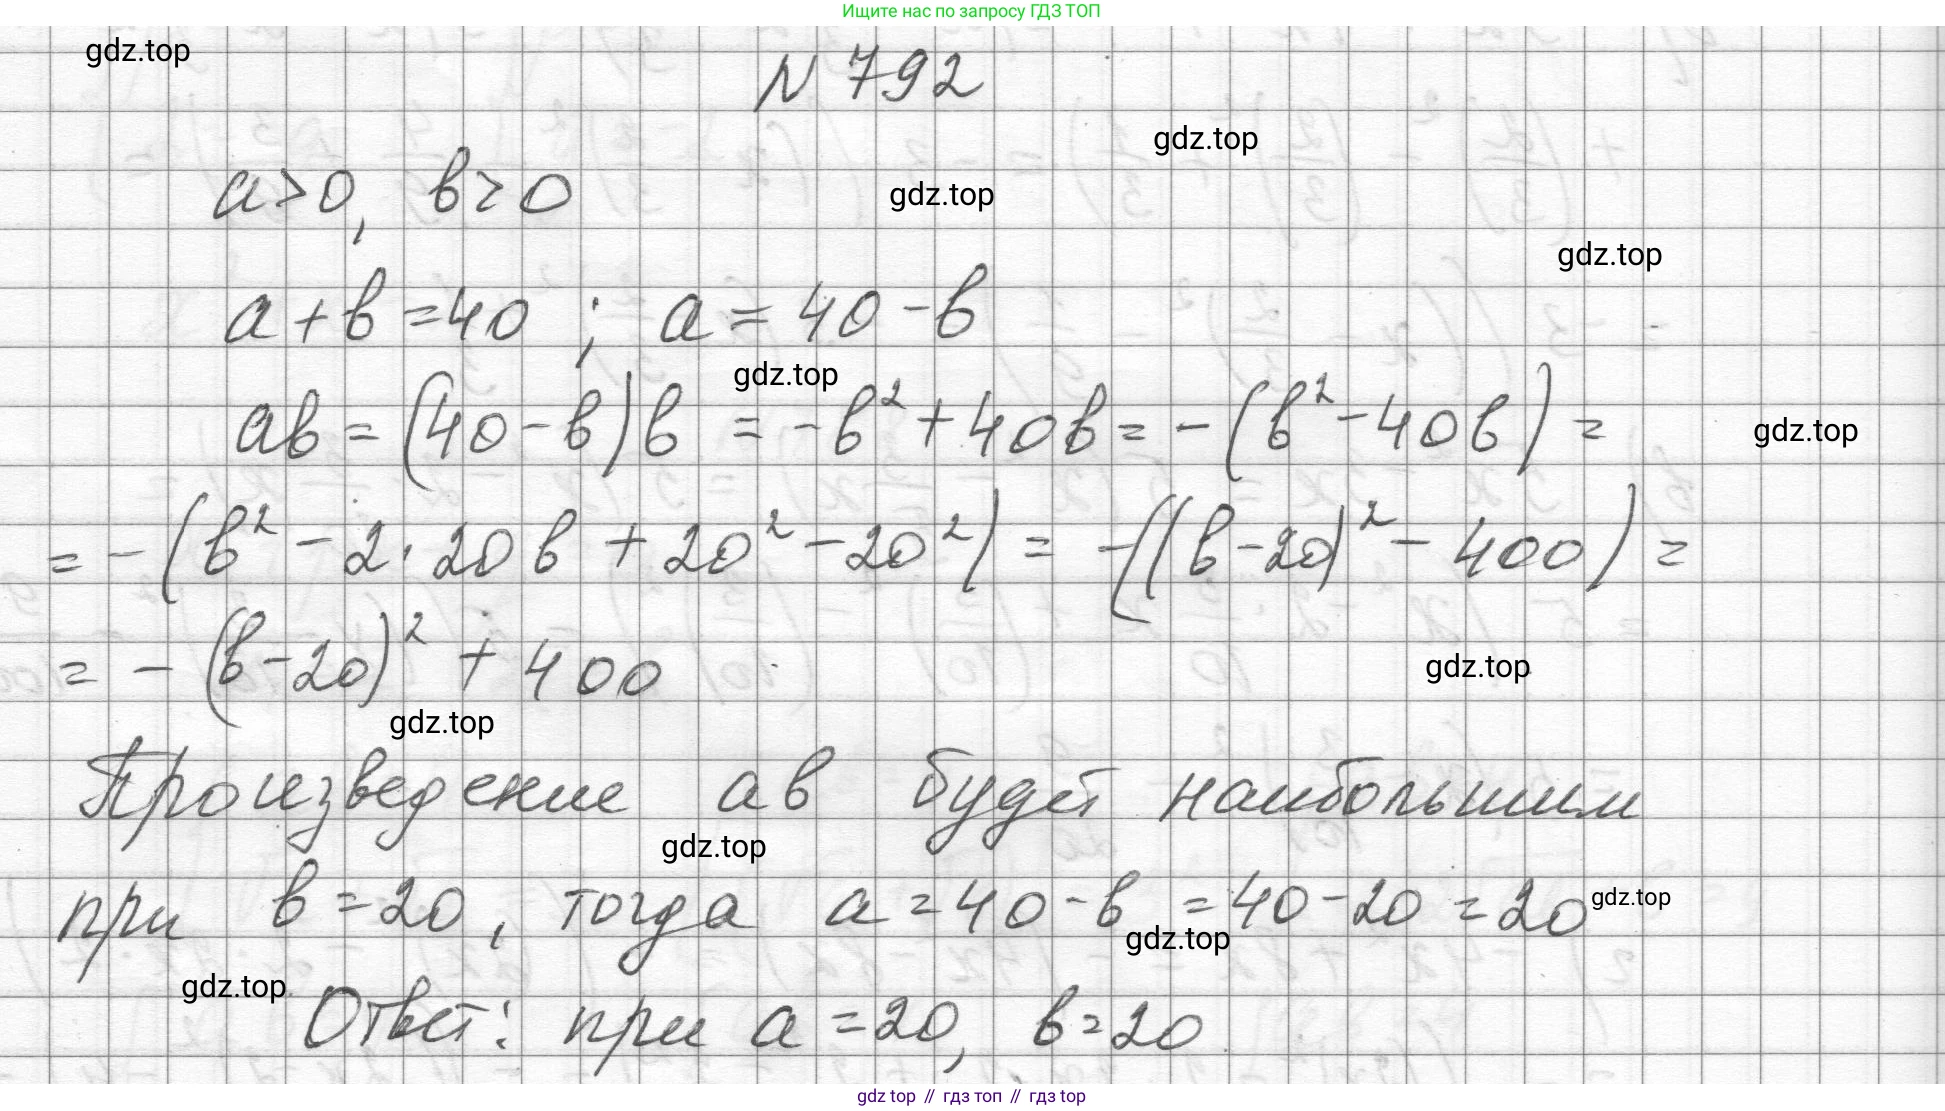 Ищите нас по запросу ГДЗ ТОП
gdz.top
N 792
gdz.top
a>0, b>0
gdz.top
gdz.top
a+b=40 ; a=40-b
gdz.top
ab=(40-b)b=-b²+40b=-(b²-40b)=
gdz.top
=-(b²-2·20b+20²-20²)=-((b-20)²-400)=
=-(b-20)²+400
gdz.top
gdz.top
Произведение ab будет наибольшим
gdz.top
при b=20, тогда a=40-b=40-20=20
gdz.top
gdz.top
gdz.top
Ответ: при a=20, b=20
gdz top // гдз топ // гдз top